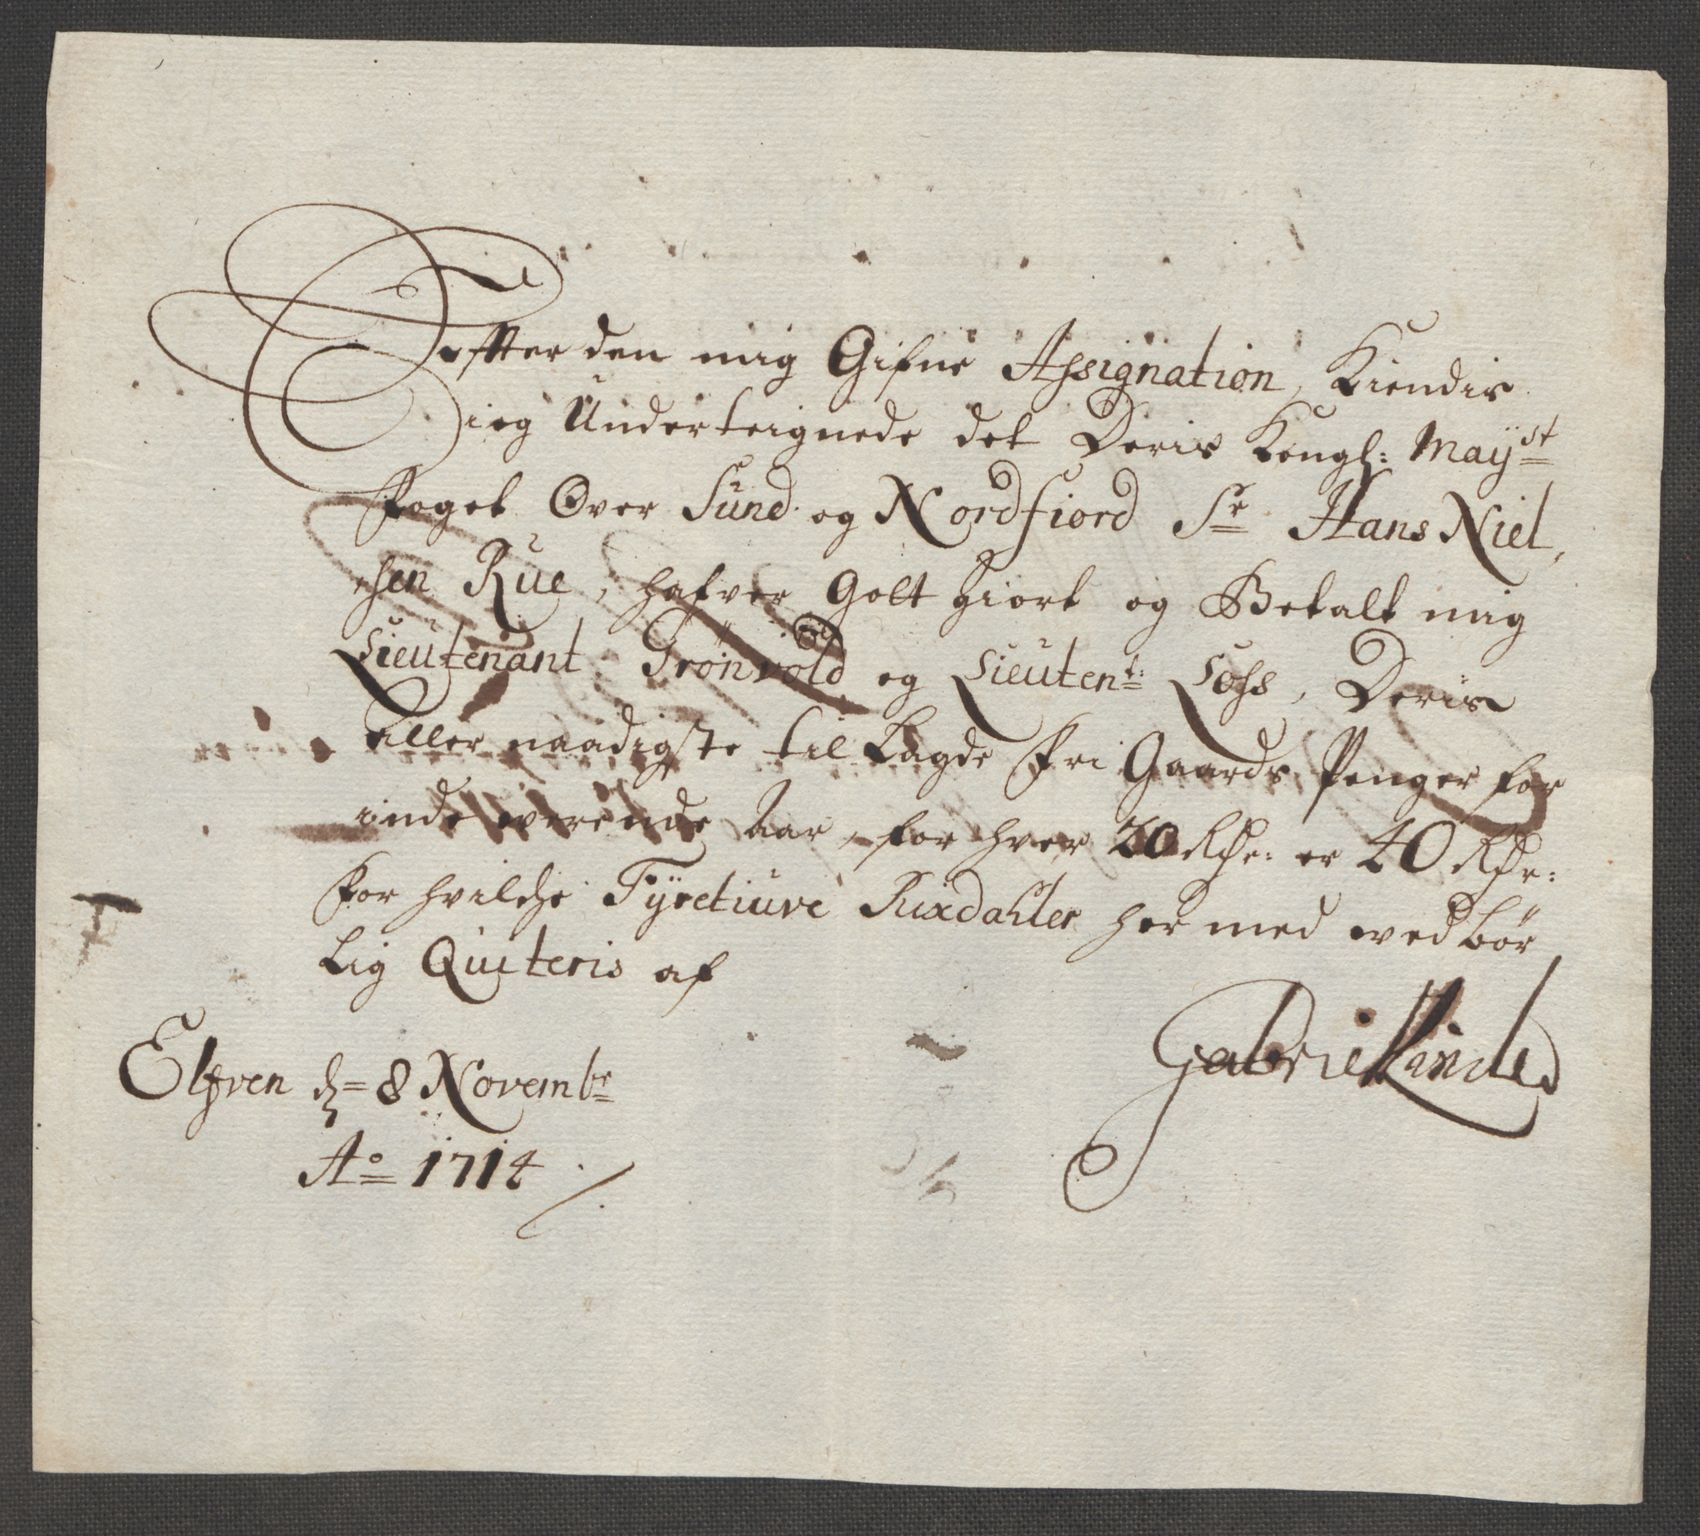 Effter den mig Gifne Assignation, Kiendis
ieg Underteignede det Deris Kongl: Mayst
Foget Over Sund og Nordfiord Sr Hans Niel,
sen Rue, hafver Golt giort og Betalt mig
Lieutenant Grönvold og Lieutent: Loss, Deris
aller naadigste til Lagde Fri Gaards Penger for
inde werende Aar, for hver 20 Rdr: er 40 Rdr:
For hvilche Fÿretiuve Rixdahler her med wed bør
Lig Quiteris af
Gabriel
Elfven d= 8 Novembr
Ao 1714